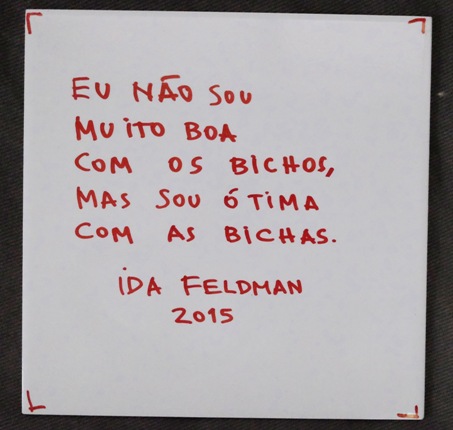 EU NÃO SOU
MUITO BOA
COM OS BICHOS,
MAS SOU ÓTIMA
COM AS BICHAS.
IDA FELDMAN
2015